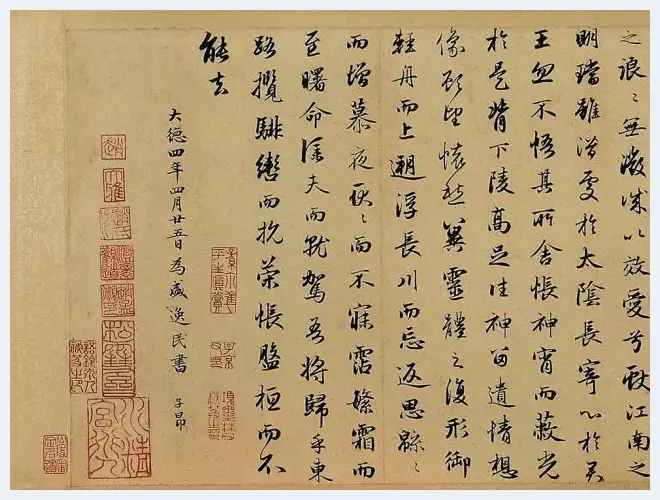 之浪〻無微誠以效愛兮獻江南之
明璫雖潛處於太陰長寄心於君
王忽不悟其所舍悵神宵而蔽光
於是背下陵高足往神留遺情想
像顧望懷愁冀靈體之復形御
輕舟而上遡浮長川而忘返思綿〻
而增慕夜耿〻而不寐霑繁霜而
至曙命僕夫而就駕吾將歸乎東
路攬騑轡而抗策悵盤桓而不
能去
大德四年四月廿五日為盛逸民書 子昂
趙
大雅